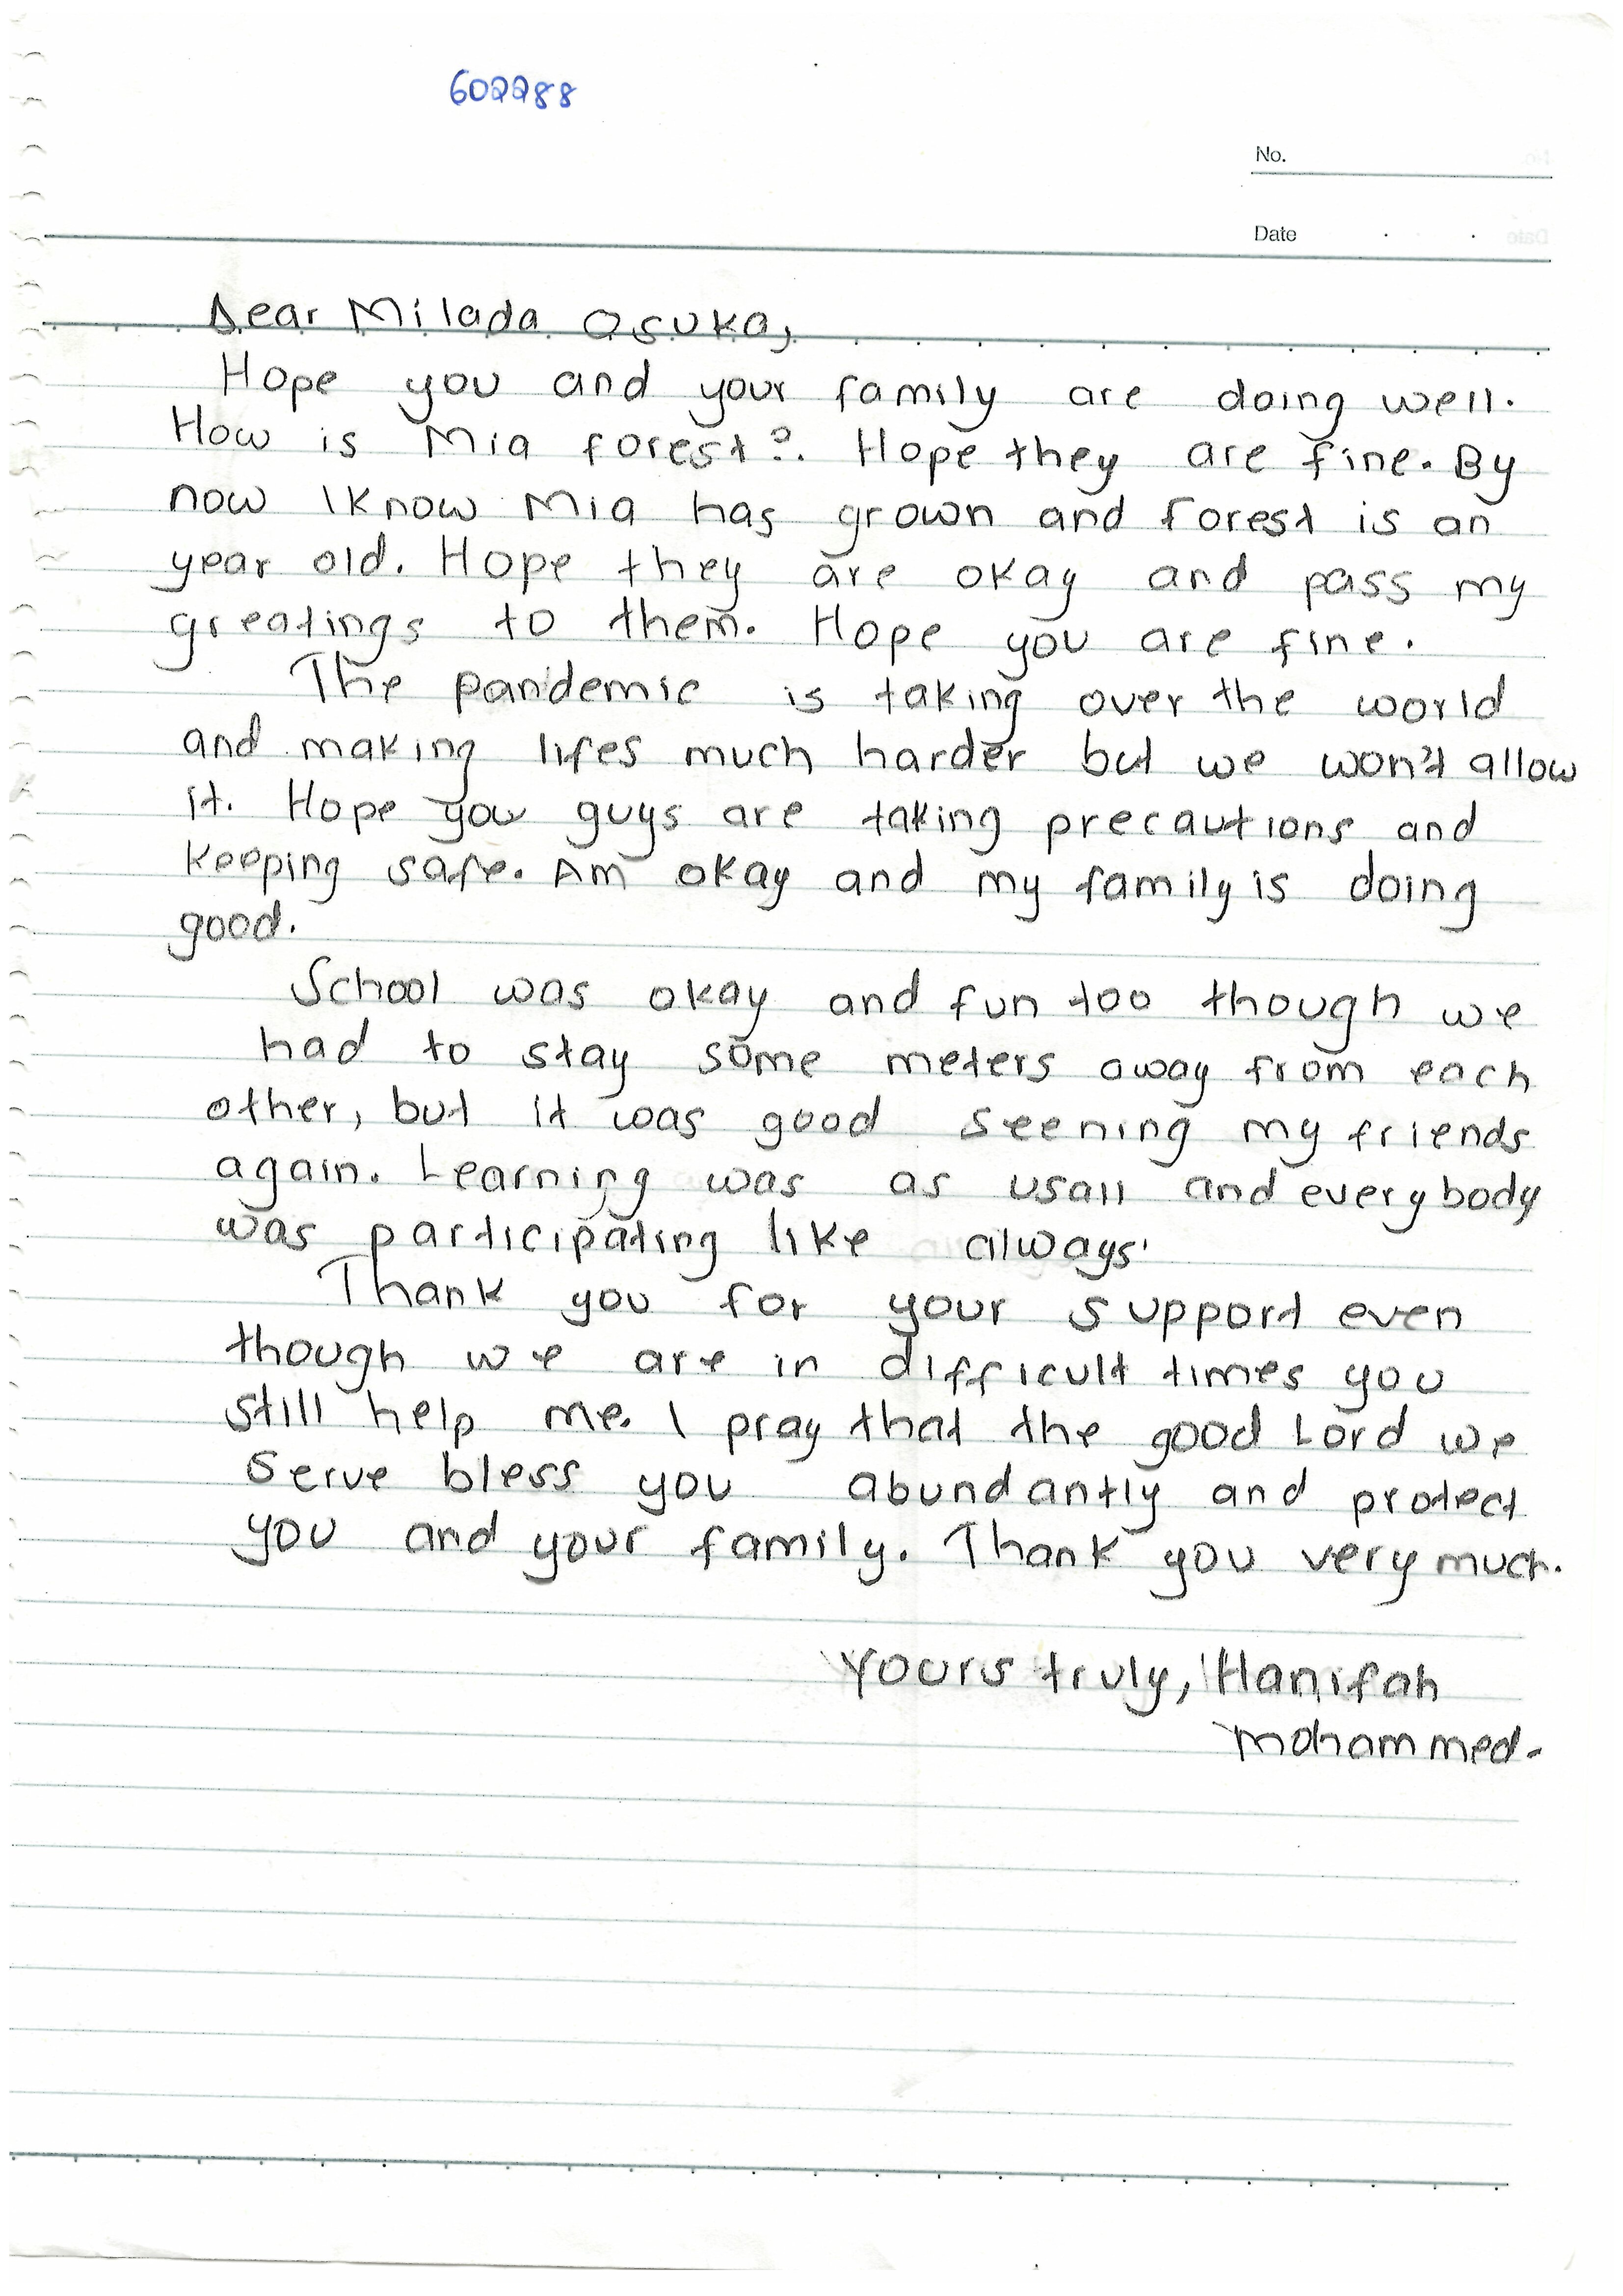 602288
No.
Date
Dear Milada Osuka,
Hope you and your family are doing well.
How is Mia forest?. Hope they are fine. By
now I know Mia has grown and forest is an
year old. Hope they are okay and pass my
greatings to them. Hope you are fine.
The pandemic is taking over the world
and making lifes much harder but we won't allow
it. Hope you guys are taking precautions and
keeping safe. Am okay and my family is doing
good.
School was okay and fun too though we
had to stay some meters away from each
other, but it was good seening my friends
again. Learning was as usall and everybody
was participating like always.
Thank you for your support even
though we are in difficult times you
still help me. I pray that the good Lord we
serve bless you abundantly and protect
you and your family. Thank you very much.
Yours truly, Hanifah
Mohammed.